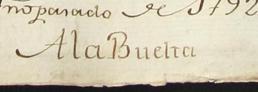 no pasado de 1792
A la Buelta